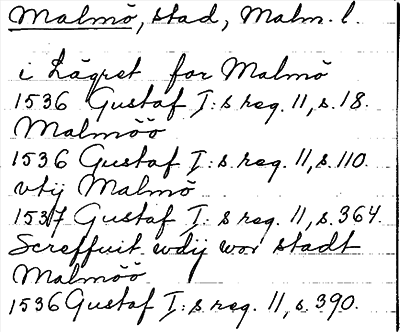 Malmö, stad, Malm. l.
i Lägret for Malmö
1536 Gustaf I:s reg. 11, s. 18.
Malmöö
1536 Gustaf I:s reg. 11, s. 110.
vtij Malmö
1537 Gustaf I:s reg. 11, s. 364.
Screffuit wdij wor stadt
Malmöö
1536 Gustaf I:s reg. 11, s. 390.